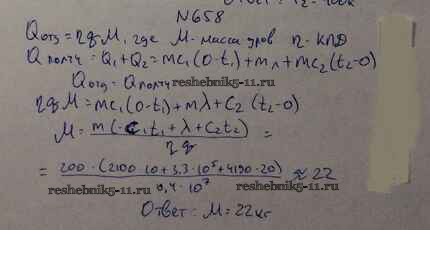 N658
Qотд = ηqM, где M - масса дров η - КПД
Q получ = Q₁ + Q₂ = mc₁(0-t₁) + mλ + mc₂(t₂-0)
Qотд = Qполуч reshebnik5-11.ru
ηqM = mc₁(0-t₁) + mλ + C₂(t₂-0)
M = m(-c₁t₁ + λ + C₂t₂) / ηq =
= 200·(2100 10 + 3,3·10⁵ + 4190·20) / 0,4·10⁷ ≈ 22
reshebnik5-11.ru reshebnik5-11.ru
Ответ: M = 22кг